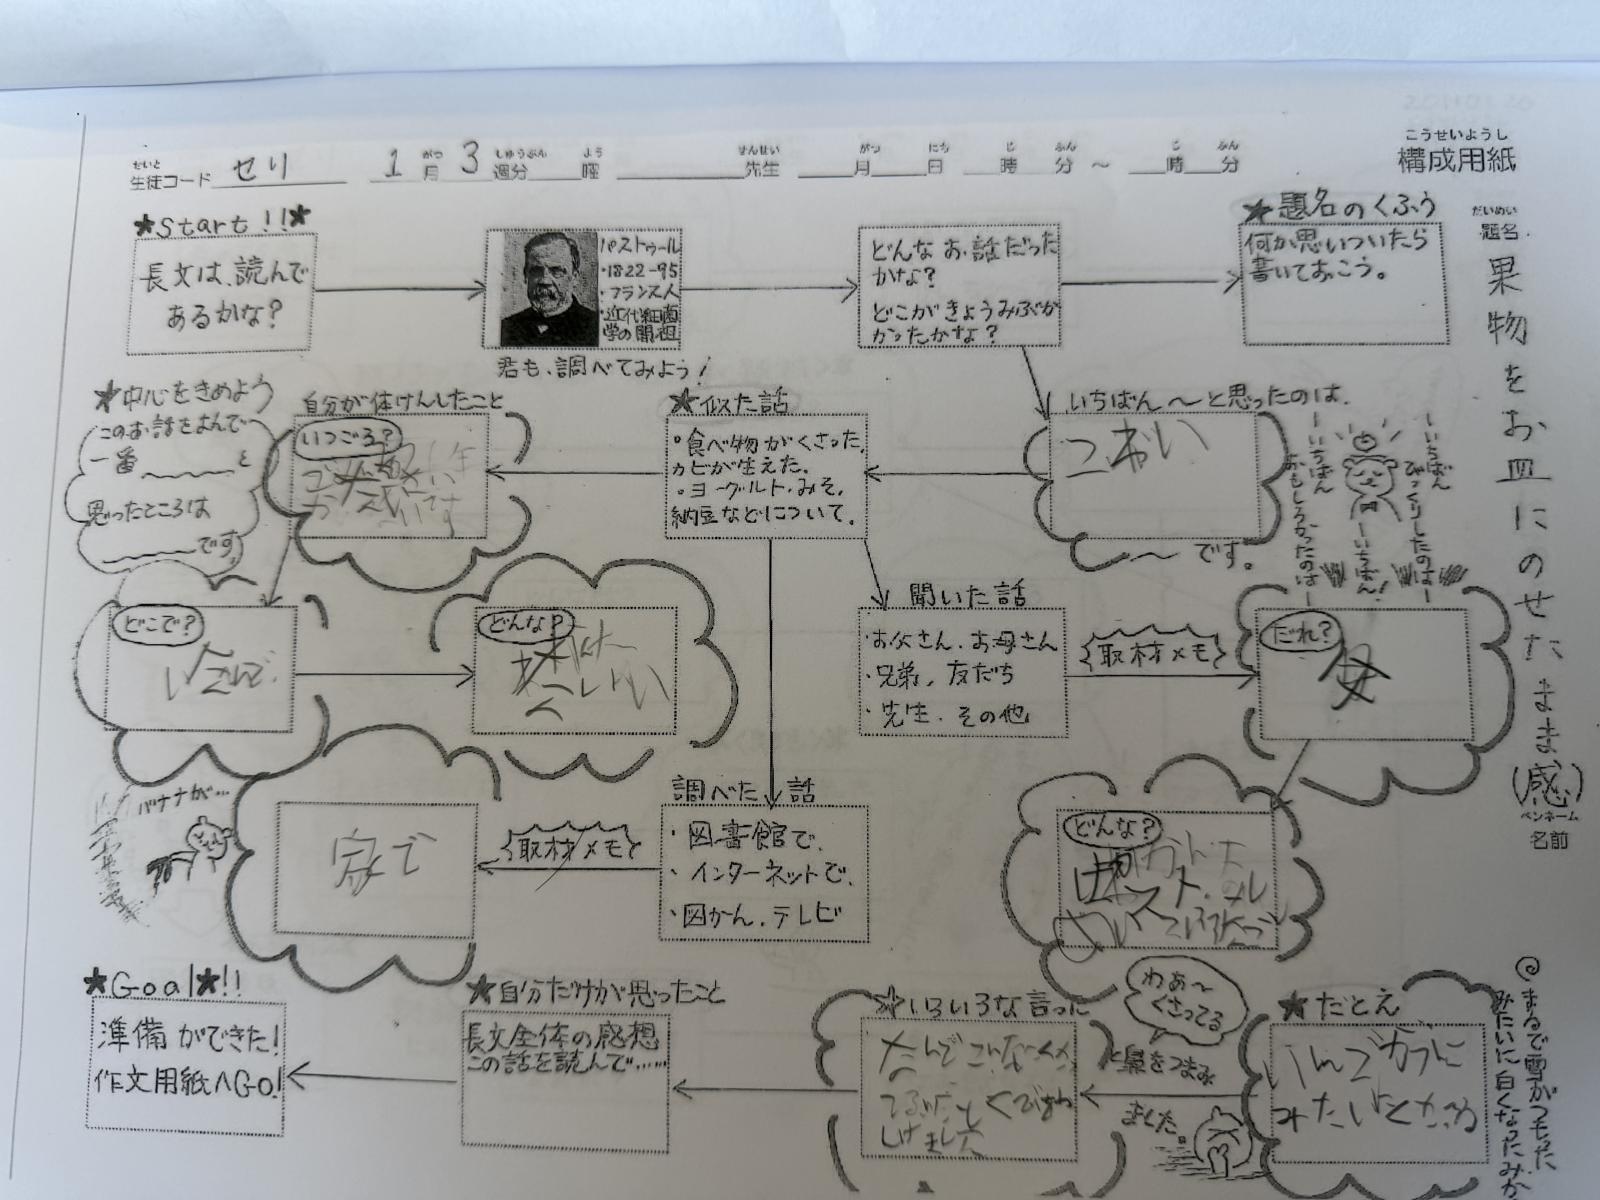 こうせいようし
構成用紙
せいと がつ しゅうぶん よう せんせい がつ にち じ ふん じ ふん
生徒コード せり 1月3週分 曜 先生 月 日 時 分 ～ 時 分
だいめい
題名
果物をお皿にのせたまま(感)
ペンネーム
名前
★Start!!★
長文は、読んで
あるかな?
パストゥール
・1822-95
・フランス人
・近代細菌
学の開祖
君も、調べてみよう!
どんなお話だった
かな?
どこがきょうみぶか
かったかな?
★題名のくふう
何か思いついたら
書いておこう。
★中心をきめよう
このお話をよんで
一番 と
思ったところは
です。
自分が体けんしたこと
いつごろ?
★似た話
・食べ物がくさった、
カビが生えた。
・ヨーグルト、みそ、
納豆などについて。
いちばん～と思ったのは、
こわい
～です。
―いちばん
びっくりしたのは―
―いちばん!
―いちばん
おもしろかったのは―
どこで?
どんな?
聞いた話
・お父さん、お母さん
・兄弟、友だち
・先生、その他
取材メモ
だれ?
母
バナナが…
家で
取材メモ
調べた話
・図書館で、
・インターネットで、
・図かん、テレビ
どんな?
★Goal★!!
準備ができた!
作文用紙へGo!
★自分だけが思ったこと
長文全体の感想
この話を読んで……
★いろいろな言った
わぁ～
くさってる
と鼻をつまみ
ました。
★たとえ
みたいにとかある
◎まるで雪がつもった
みたいに白くなったみか